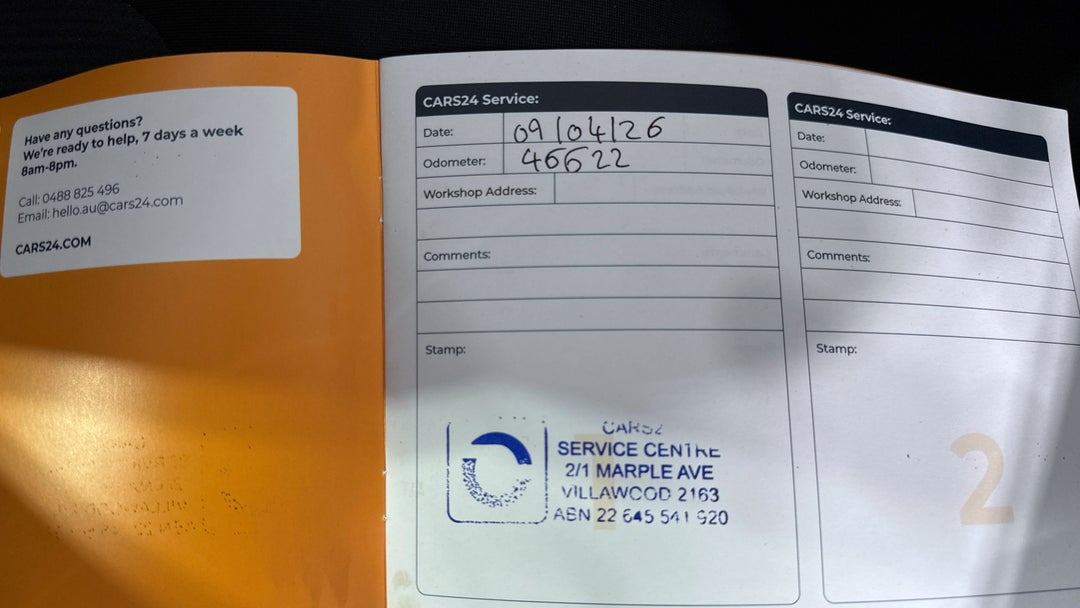 Have any questions?
We're ready to help, 7 days a week
8am-8pm.
Call: 0488 825 496
Email: hello.au@cars24.com
CARS24.COM
CARS24 Service:
Date: 09/04/26
Odometer: 46622
Workshop Address:
Comments:
Stamp:
SERVICE CENTRE
2/1 MARPLE AVE
VILLAWOOD 2163
ABN 22 645 541 920
CARS24 Service:
Date:
Odometer:
Workshop Address:
Comments:
Stamp:
2